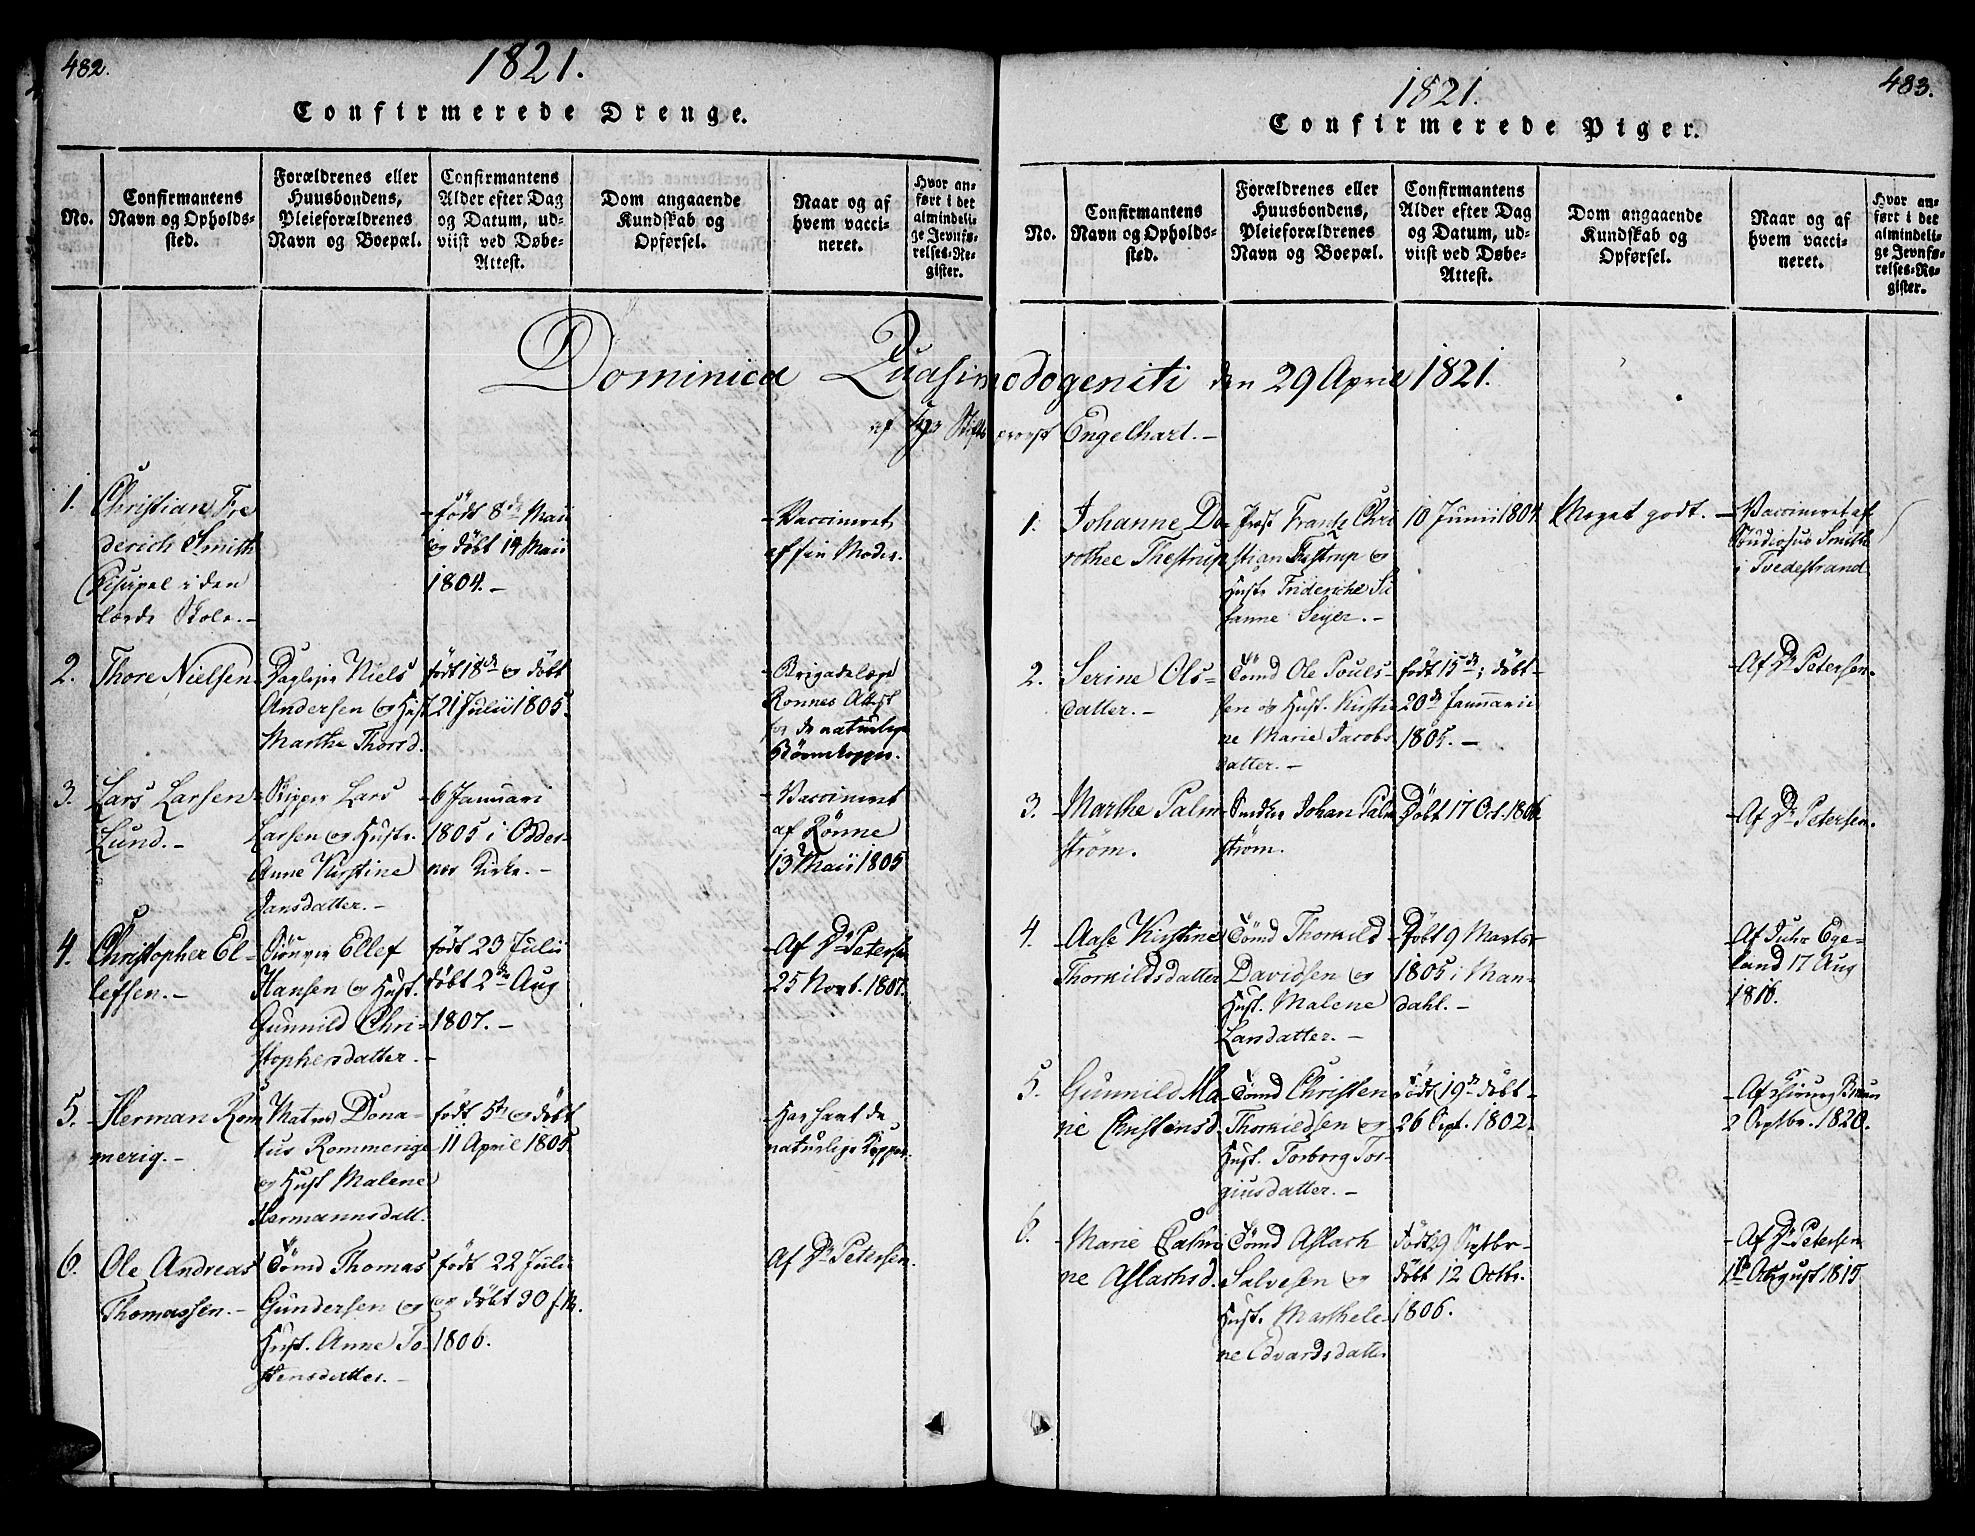 482.
1821.
Confirmerede Drenge.
No.
Confirmantens
Navn og Opholds-
sted.
Forældrenes eller
Huusbondens,
Pleieforældrenes
Navn og Boepæl.
Confirmantens
Alder efter Dag
og Datum, ud-
viist ved Døbe-
Attest.
Dom angaaende
Kundskab og
Opførsel.
Naar og af
hvem vacci-
neret.
Hvor an-
ført i det
almindeli-
ge Jevnfø-
relses-Re-
gister.
Dominica Quasimodogeniti den 29 April 1821.
af Stifts provst Engelhart.-
1.
Christian Fre
derich Smith
Discipel i den
lærde Skole.-
-født 8de Maii
og døbt 14 Maii
1804.-
-Vaccineret
af sin Moder.
2.
Thore Nielsen
Dagleier Niels
Andersen og Hust
Marthe Thorsd.
født 18de og døbt
21 Julii 1805.
-Brigadelæge
Rønnes Attest
for de naturlige
Børnekopper.
3.
Lars Larsen
Lund.-
Skipper Lars
Larsen og Hustr.
Anne Kirstine
Jansdatter.-
-6 Januari
1805 i Odder-
nes Kirke.-
-Vaccineret
af Rønne
13 Maii 1805
4.
Christopher El-
lefsen.-
Ellef
Hansen og Hust.
Gunnild Chri-
stophersdatter.-
født 23 Julii
døbt 2den Aug
1807.-
-Af Dr Petersen
25 Novb. 1807.
5.
-Herman Rom
merig.-
Matros Dona-
tus Rommerige
og Hust Malene
Hermannsdatt.
født 5te og døbt
11 April 1805
-Har havt de
naturlige Kopper.
6.
Ole Andreas
Thomassen.-
Tømd Thomas
Gundersen og
Hust. Anne To-
stensdatter.-
født 22 Julii
og døbt 30 f. M.
1806.
Af Dr Petersen.
483.
1821.
Confirmerede Piger.
No.
Confirmantens
Navn og Opholds-
sted.
Forældrenes eller
Huusbondens,
Pleieforældrenes
Navn og Boepæl.
Confirmantens
Alder efter Dag
og Datum, ud-
viist ved Døbe-
Attest.
Dom angaaende
Kundskab og
Opførsel.
Naar og af
hvem vacci-
neret.
Hvor an-
ført i det
almindeli-
ge Jevnfø-
relses-Re-
gister.
1.
Johanne Do-
rothee Thestrup
Præst Frantz Chri
stian Thestrup og
Hustr Friderike Su
sanne Sejer.-
10 Junii 1804.
Meget godt.
-Vaccineret af
Studiosus Smith
i Tvedestrand
2.
Serine Ols-
datter.-
Tømd Ole Pouls-
sen og Hust. Kirsti-
ne Marie Jacobs
datter.-
født 15de; døbt
20de Januarii
1805.-
-Af Dr Petersen.
3.
-Marthe Palm-
strøm.
Snedker Johan Palm
strøm.
Døbt 17 Oct. 1806
-Af Dr Petersen.
4.
-Aase Kirstine
Thorkildsdatter
Tømd Thorkild
Davidsen og
Hust. Malene
Larsdatter.-
-Døbt 9 Marts
1805 i Man-
dahl.-
-Af Ege-
land 17 Aug
1816.
5.
Gunnild Ma
rie Christensd.
-Tømd Christen
Thorkildsen og
Hust. Torborg Tor-
giusdatter.-
Født 19de døbt
26 Sept. 1802.
-Af Chirurg Braun
2 Septbr. 1820.
6.
-Marie Cathri
ne Aslachsd.
Tømd Aslach
Salvesen og
Hust. Marthele-
ne Edvardsdatter
Født 29 Septbr-
døbt 12 Octbr.
1806.
-Af Dr Petersen
1ste August 1815